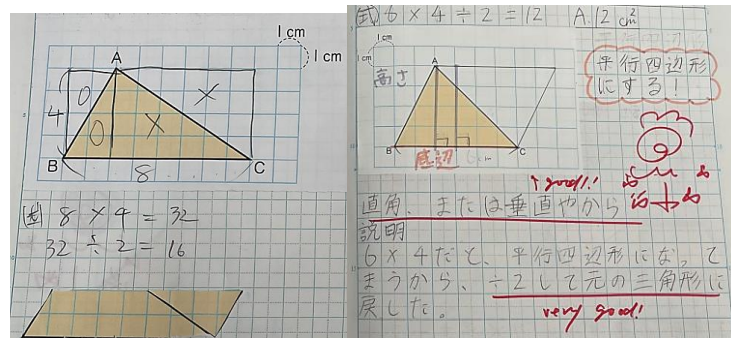 1 cm
1 cm
A
4
B
8
C
式 8×4=32
32÷2=16
式 6×4÷2=12 A.12cm²
1 cm
1 cm
平行四辺形
にする!
A
高さ
B
底辺
cm
C
↑good!!
直角、または垂直やから
説明
6×4だと、平行四辺形になって
まうから、÷2して元の三角形に
戻した。
very good!